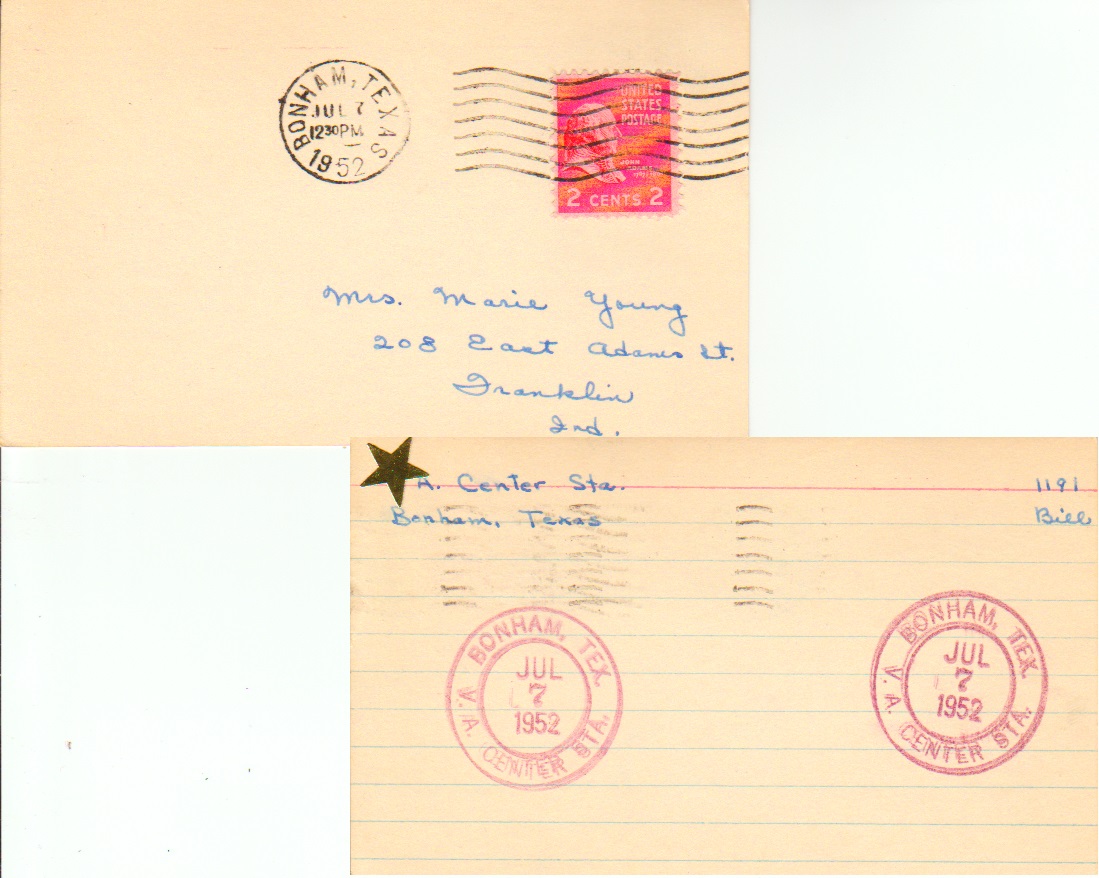 BONHAM, TEXAS
JUL 7
1230PM
1952
UNITED
STATES
POSTAGE
JOHN
2 CENTS 2
Mrs. Marie Young
208 East Adams St.
Franklin
Ind.
A. Center Sta.
1191
Bonham, Texas
Bill
BONHAM, TEX.
JUL
7
1952
V.A. CENTER STA.
BONHAM, TEX.
JUL
7
1952
V.A. CENTER STA.